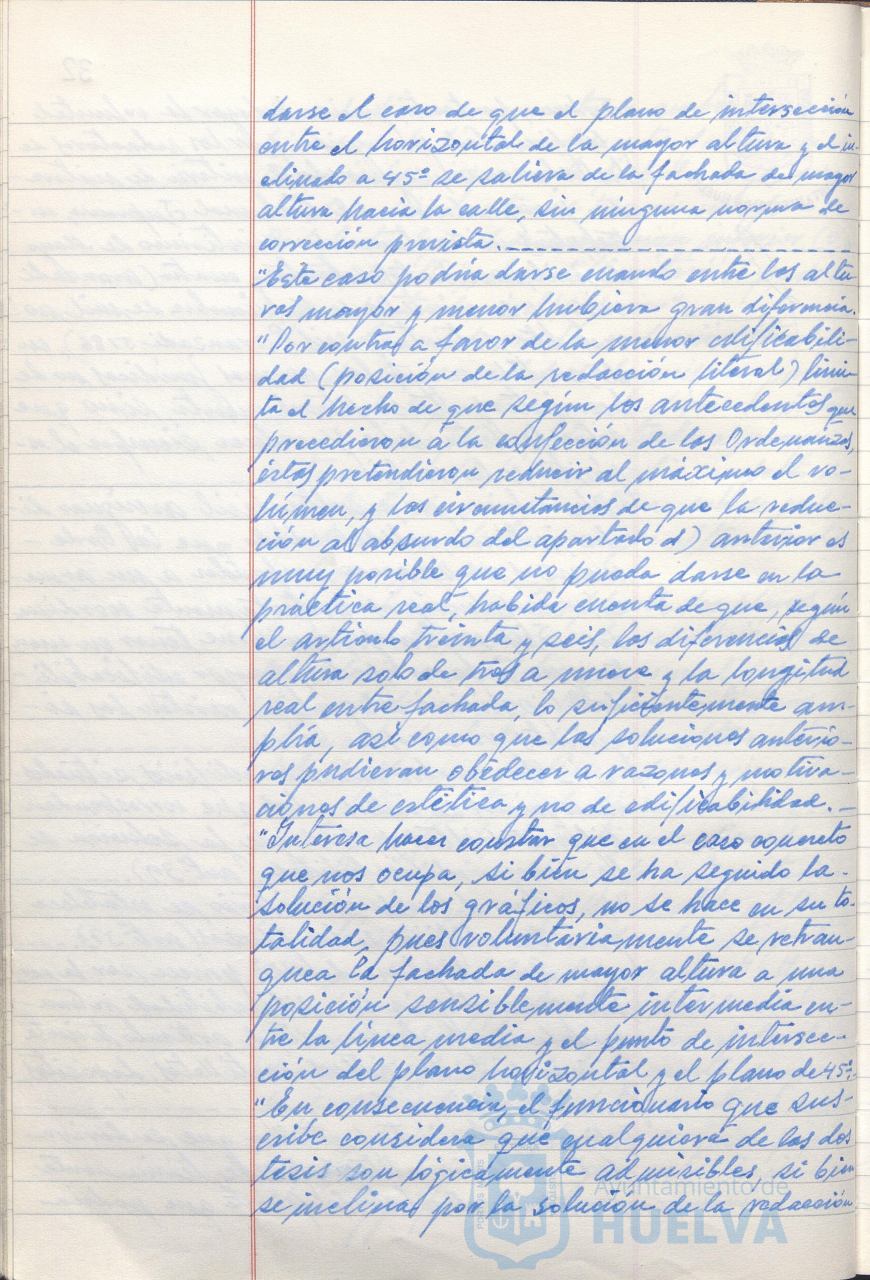 darse el caso de que el plano de intersección
entre el horizontal de la mayor altura y el in-
clinado a 45º se saliera de la fachada de mayor
altura hacia la calle, sin ninguna norma de
corrección prevista.
"Este caso podría darse cuando entre las altu-
ras mayor y menor hubiera gran diferencia.
"Por contra, a favor de la menor edificabili-
dad (posición de la redacción literal) limi-
ta el hecho de que según los antecedentes que
precedieron a la confección de las Ordenanzas,
éstas pretendieron reducir al máximo el vo-
lúmen, y las circunstancias de que la reduc-
ción al absurdo del apartado d) anterior es
muy posible que no pueda darse en la
práctica real, habida cuenta de que, según
el artículo treinta y seis, las diferencias de
altura solo de tres a nueve y la longitud
real entre fachada, lo suficientemente am-
plia, así como que las soluciones anterio-
res pudieran obedecer a razones y motiva-
ciones de estética y no de edificabilidad.-
"Interesa hacer constar que en el caso concreto
que nos ocupa, si bien se ha seguido la-
solución de los gráficos, no se hace en su to-
talidad, pues voluntariamente se retran-
quea la fachada de mayor altura a una
posición sensiblemente intermedia en-
tre la línea media y el punto de intersec-
ción del plano horizontal y el plano de 45º.-
"En consecuencia, el funcionario que sus-
cribe considera que cualquiera de las dos
tesis son lógicamente admisibles, si bien
se inclina por la solución de la redacción
Ayuntamiento de
HUELVA
32